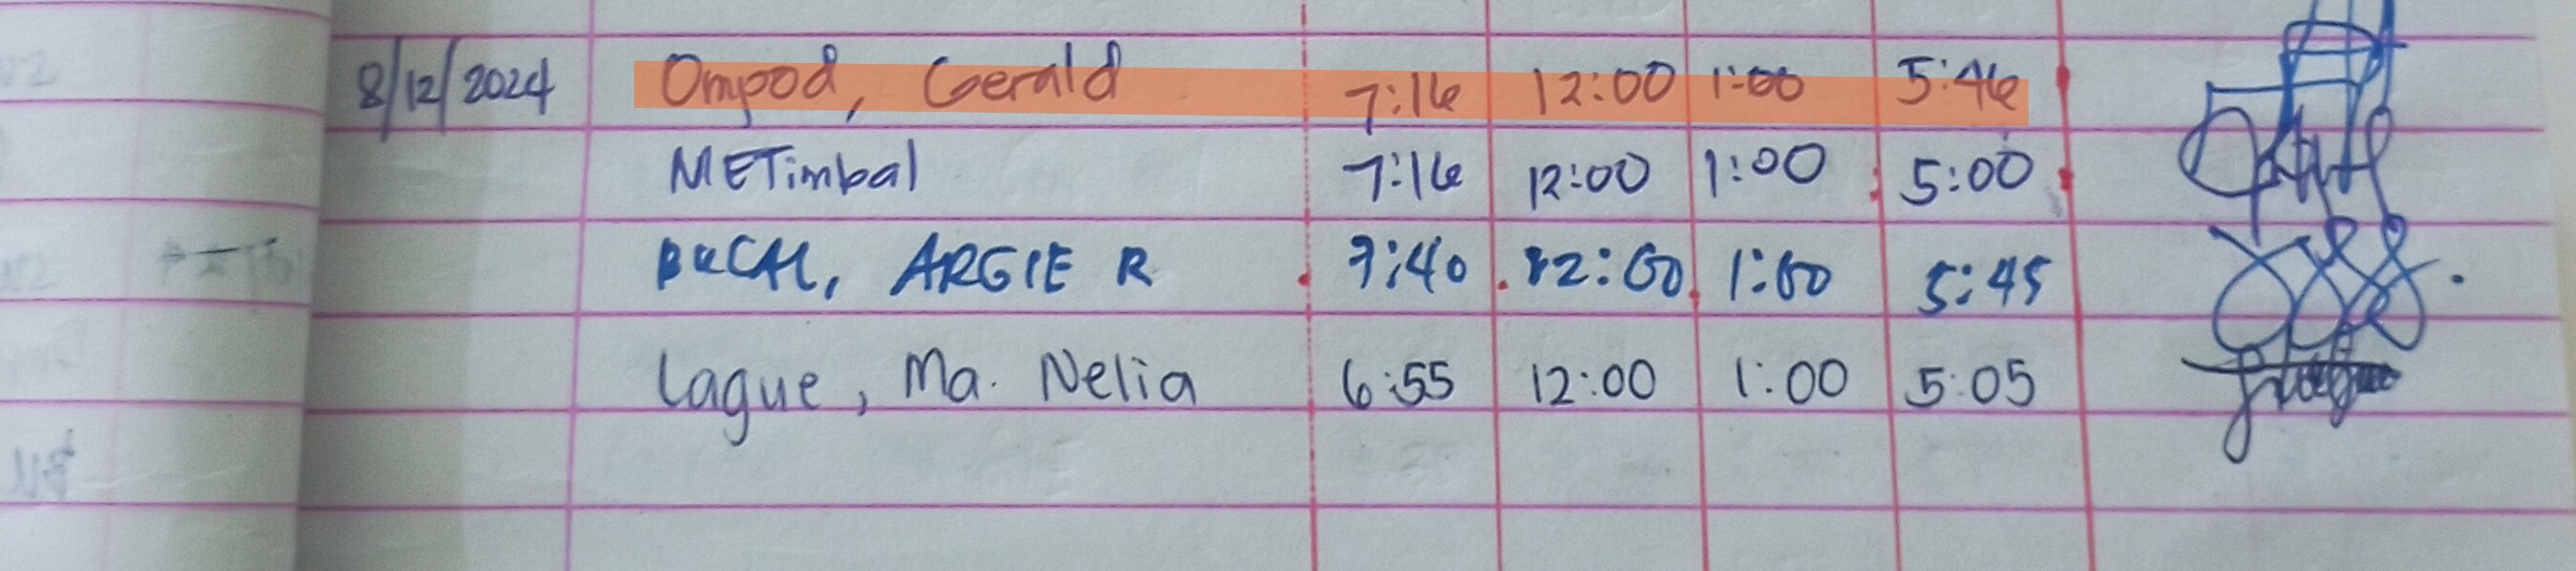 8/12/2024 Ompod, Gerald 7:16 12:00 1:00 5:46
METimbal 7:16 12:00 1:00 5:00
BUCAL, ARGIE R 7:40 12:00 1:00 5:45
Lague, Ma. Nelia 6:55 12:00 1:00 5:05